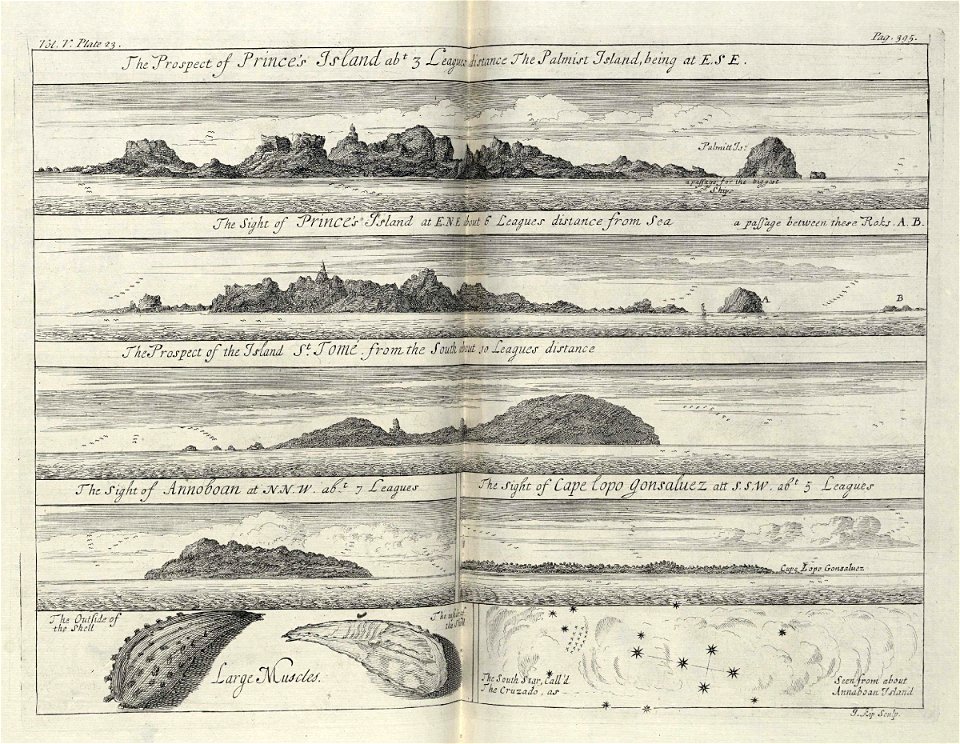 Vol. V. Plate 23.
Pag. 395.
The Prospect of Prince's Island abt 3 Leagues distance The Palmist Island, being at E.S E.
Palmitt Is:
a passage for the biggest
Ships
The Sight of Prince's Island at E.N.E about 6 Leagues distance from Sea
a passage between these Roks. A. B.
A
B
The Prospect of the Island St. Tome. from the South about 10 Leagues distance
The Sight of Annoboan at N.N.W. abt. 7 Leagues
The Sight of Cape Lopo Gonsaluez att S.S.W. abt 5 Leagues
Cape Lopo Gonsaluez
The Outside of
the Shell
The
of
Large Muscles.
The South Star, Call'd
The Cruzado, as
Seen from about
Annaboan Island
J. Kip Sculp.